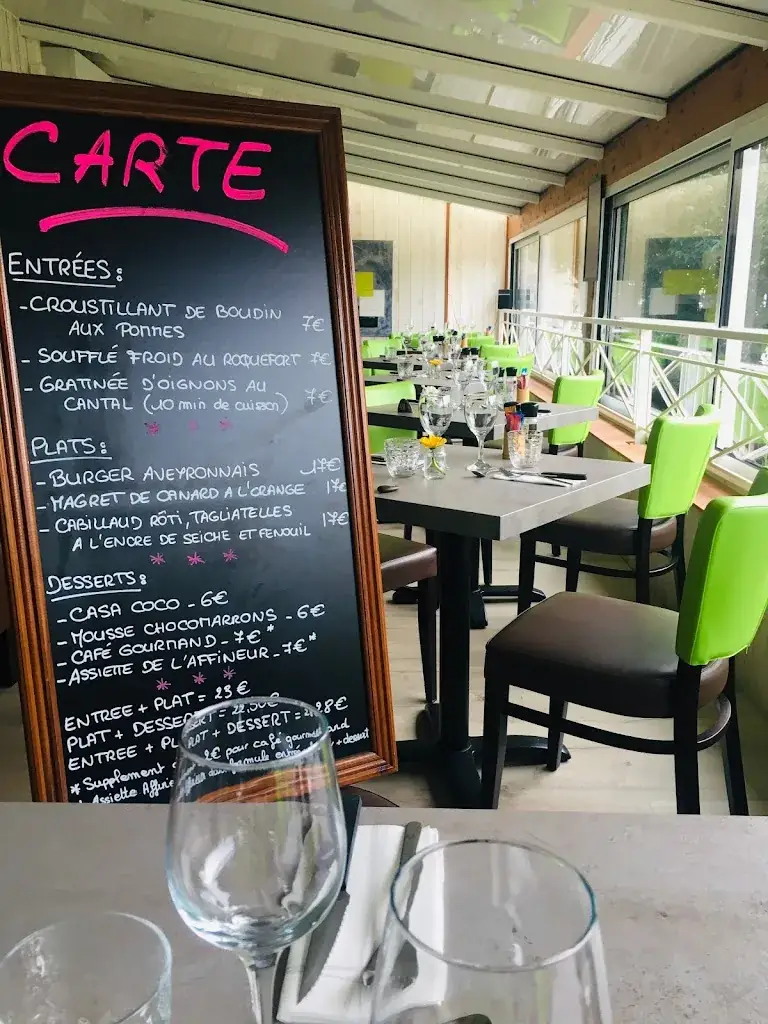 CARTE
ENTRÉES :
- CROUSTILLANT DE BOUDIN
AUX POMMES 7€
- SOUFFLÉ FROID AU ROQUEFORT 7€
- GRATINÉE D'OIGNONS AU
CANTAL (10 min de cuisson) 7€
* * *
PLATS :
- BURGER AVEYRONNAIS 17€
- MAGRET DE CANARD A L'ORANGE 17€
- CABILLAUD RÔTI, TAGLIATELLES 17€
A L'ENCRE DE SEICHE ET FENOUIL
* * *
DESSERTS :
- CASA COCO - 6€
- MOUSSE CHOCOMARRONS - 6€
- CAFÉ GOURMAND - 7€ *
- ASSIETTE DE L'AFFINEUR - 7€ *
* * *
ENTREE + PLAT = 23€
PLAT + DESSERT = 22,50€
ENTREE + PLAT + DESSERT = 28€
* Supplement 2€ pour café gourmand
formule entrée + dessert